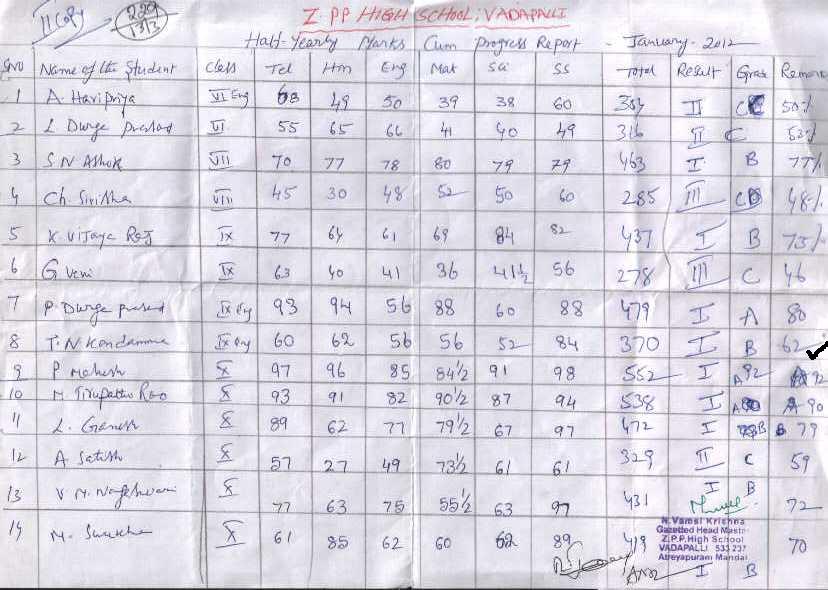 II Copy
229
13/3
Z PP HIGH SCHOOL; VADAPALLI
Half-Yearly Marks Cum Progress Report - January-2012
SNO Name of the Student Class Tel Hin Eng Mat Sci SS Total Result Grade Remark
1 A. Haripriya VI Eng 68 49 50 39 38 60 304 II C 50%
2 L. Durga prasad VI 55 65 66 41 40 49 316 II C 52%
3 S N Ashok VII 70 77 78 80 79 79 463 I B 77%
4 Ch. Sirisha VIII 45 30 48 52 50 60 285 III C 48%
5 K. Vijaya Raj IX 77 64 61 69 84 82 437 I B 73%
6 G Veni IX 63 40 41 36 41½ 56 278 III C 46
7 P. Durga prasad IX Eng 93 94 56 88 60 88 479 I A 80
8 T. N Kondamma IX Eng 60 62 56 56 52 84 370 I B 62
9 P Mahesh X 97 96 85 84½ 91 98 552 I A 92 A 92
10 M. Tirupathi Rao X 93 91 82 90½ 87 94 538 I A A-90
11 L. Ganesh X 89 62 77 79½ 67 97 472 I B B 79
12 A Satish X 57 27 49 73½ 61 61 329 II C 59
13 V M. Nageshwari X 77 63 75 55½ 63 97 431 I B 72
14 M. X 61 85 62 60 62 89 419 I B 70
N.Vamsi Krishna
Gazetted Head Master
Z.P.P.High School
VADAPALLI 533 237
Atreyapuram Mandal